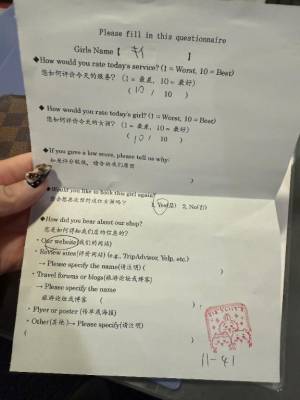 Please fill in this questionnaire
Girls Name 【 】
◆How would you rate today's service? (1 = Worst, 10 = Best)
您如何评价今天的服务？(1 = 最差, 10 = 最好)
( 10 / 10 )
◆How would you rate today's girl? (1 = Worst, 10 = Best)
您如何评价今天的女孩？(1 = 最差, 10 = 最好)
( 10 / 10 )
◆If you gave a low score, please tell us why:
如果评分较低，请告诉我们原因
)
Would you like to book this girl again?
1. Yes(是) 2. No(否)
◆How did you hear about our shop?
您是如何得知我们店的信息的?
・Our website(我们的网站)
・Review sites(评价网站) (e.g., TripAdvisor, Yelp, etc.)
→ Please specify the name(请注明) ( )
・Travel forums or blogs(旅游论坛或博客)
→ Please specify the name
旅游论坛或博客 ( ) ,
・Flyer or poster (传单或海报)
・Other(其他) → Please specify(请注明)
( )
11-41